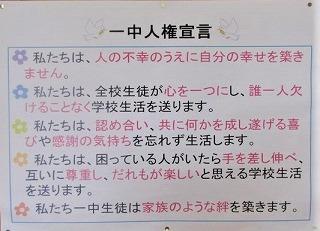 一中人権宣言
私たちは、人の不幸のうえに自分の幸せを築き
ません。
私たちは、全校生徒が心を一つにし、誰一人欠
けることなく学校生活を送ります。
私たちは、認め合い、共に何かを成し遂げる喜
びや感謝の気持ちを忘れず生活します。
私たちは、困っている人がいたら手を差し伸べ、
互いに尊重し、だれもが楽しいと思える学校生活
を送ります。
私たち一中生徒は家族のような絆を築きます。